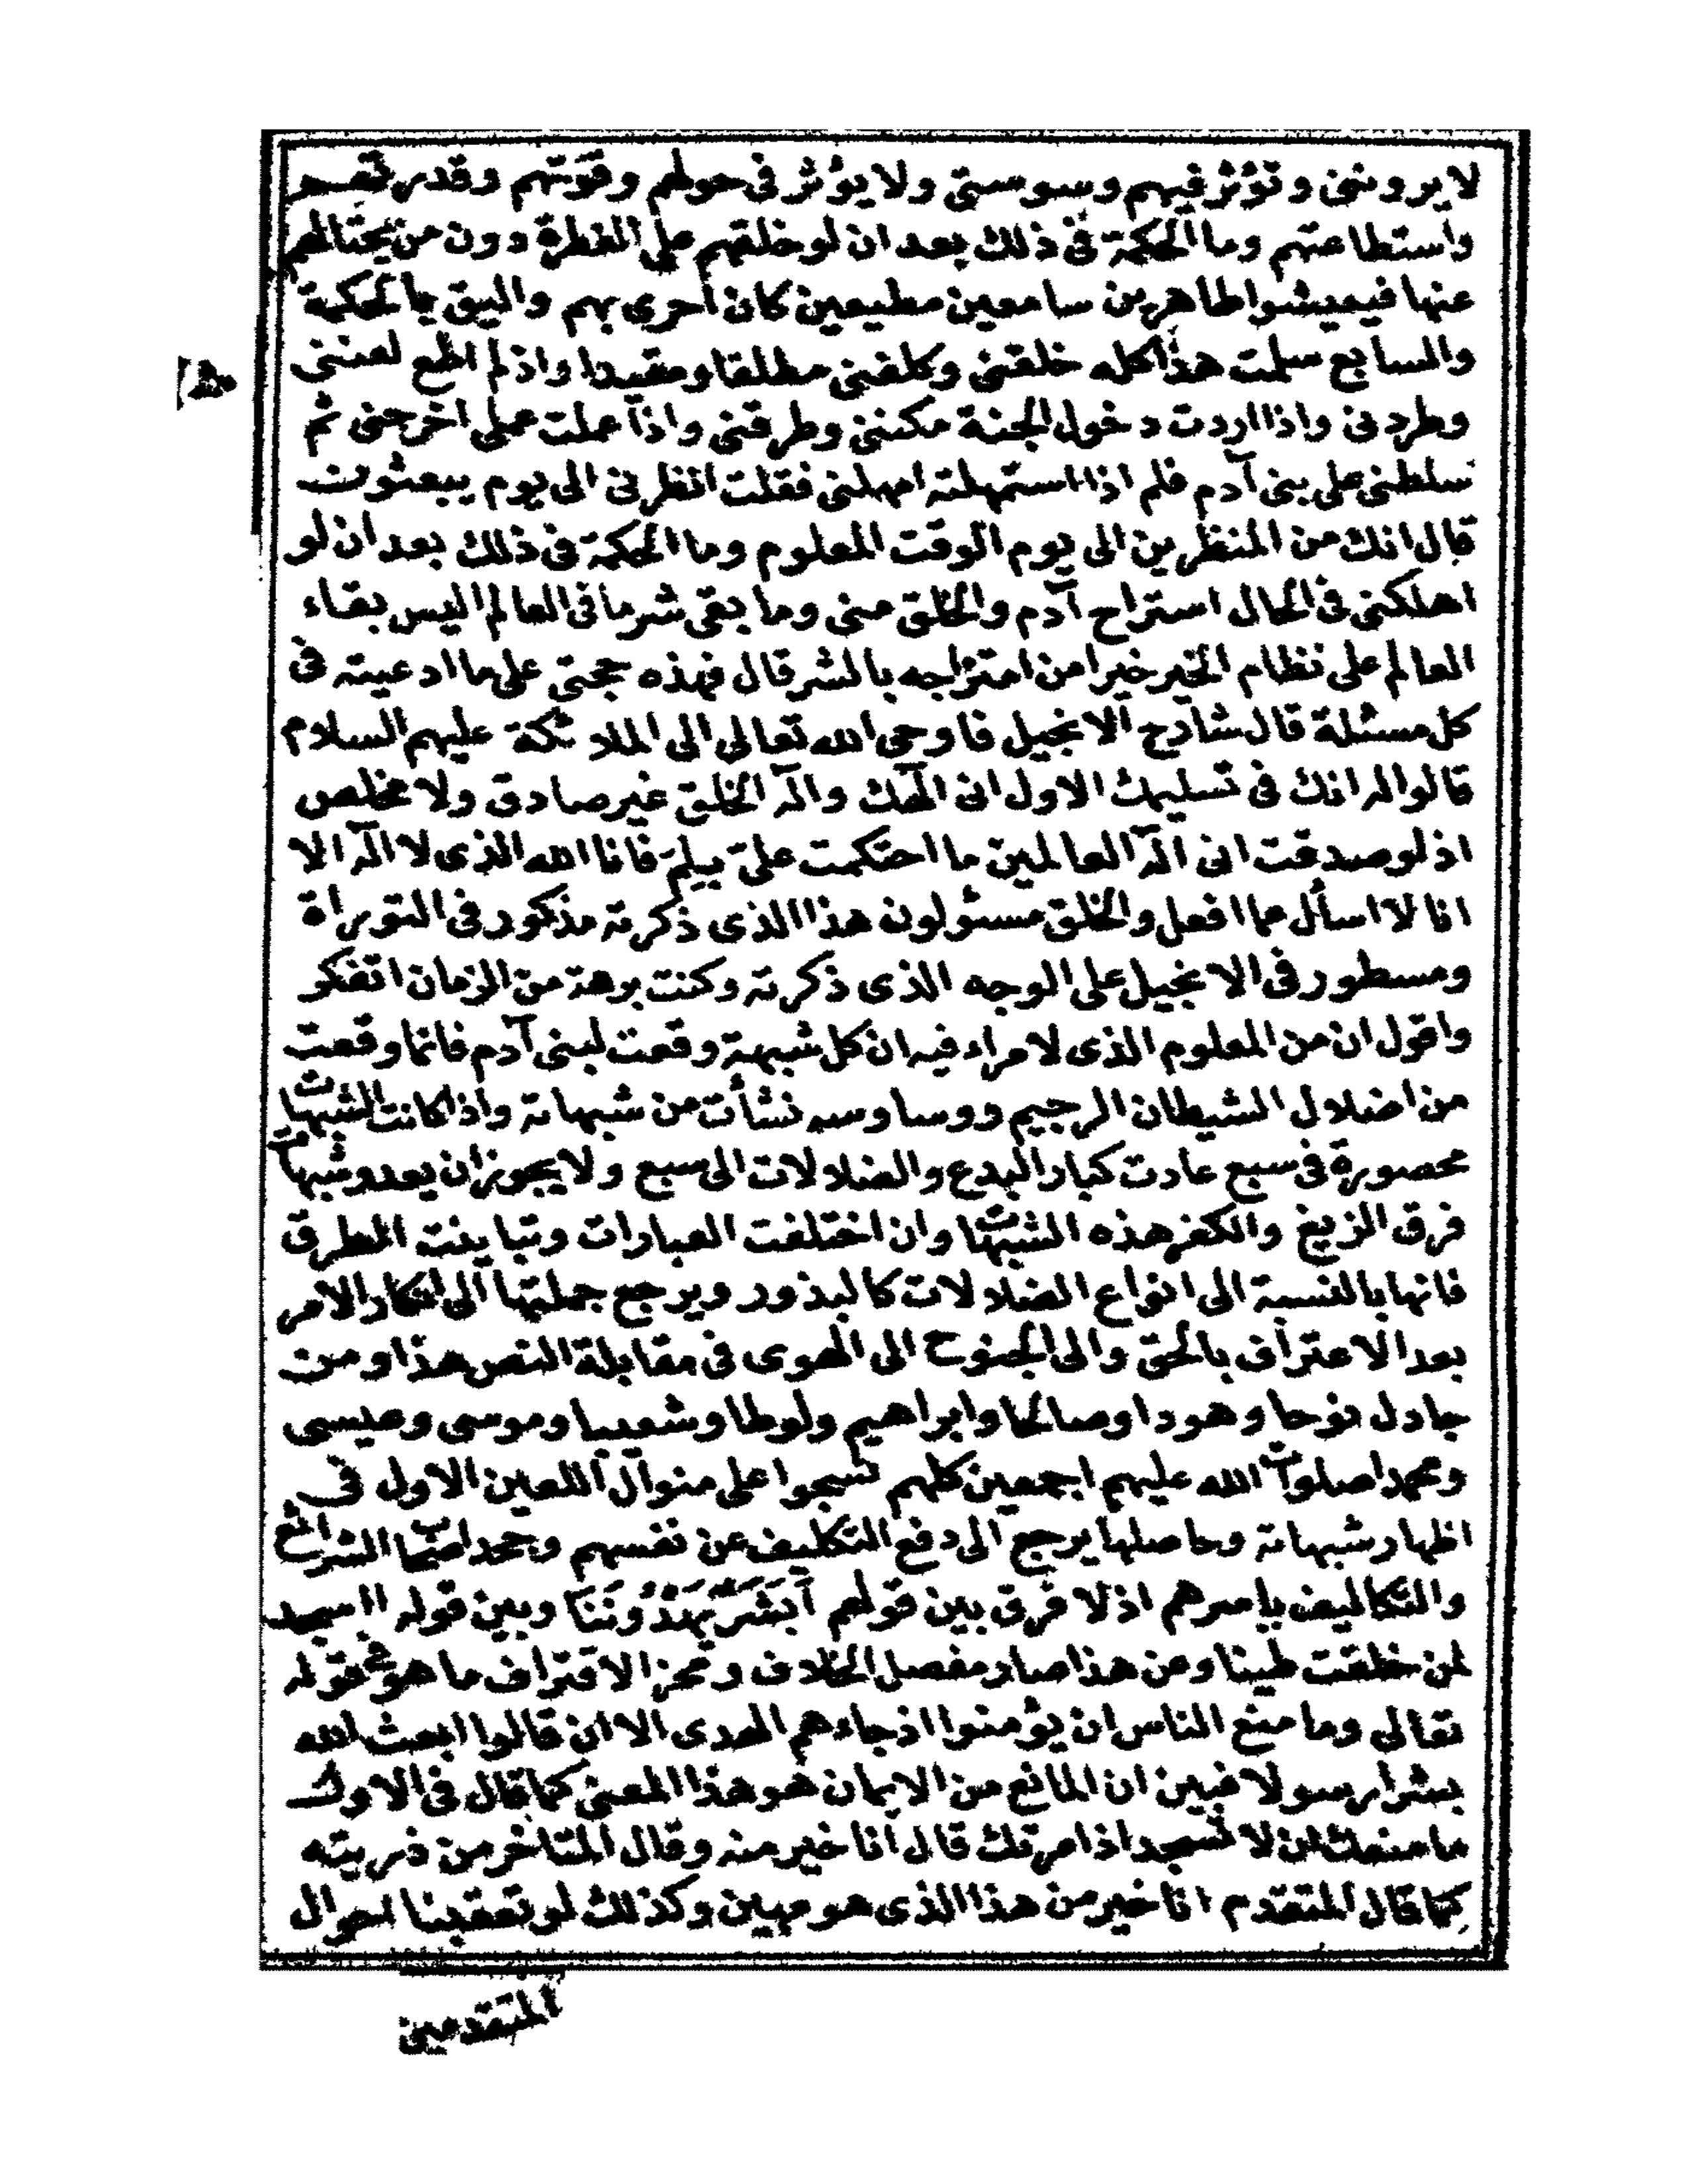 لا يروننى وتؤثر فيهم وسوستى ولا يؤثر فى حولهم وقوتهم وقدرتهم
واستطاعتهم وما الحكمة فى ذلك بعد ان لو خلقهم على الفطرة دون من يحتالهم
عنها فيعيشوا طاهرين سامعين مطيعين كان احرى بهم واليق بالحكمة
والسابع سلمت هذا كله خلقنى وكلفنى مطلقا ومقيدا واذ لم اطع لعننى
وطردنى واذا اردت دخول الجنة مكننى وطرقنى واذا عملت عملى اخرجنى ثم
سلطنى على بنى آدم فلم اذا استمهلته امهلنى فقلت انظرنى الى يوم يبعثون
قال انك من المنظرين الى يوم الوقت المعلوم وما الحكمة فى ذلك بعد ان لو
اهلكنى فى الحال استراح آدم والخلق منى وما بقى شر ما فى العالم اليس بقاء
العالم على نظام الخير خيرا من امتزاجه بالشر قال فهذه حجتى على ما ادعيته فى
كل مسئلة قال شارح الانجيل فاوحى الله تعالى الى الملائكة عليهم السلام
قالوا له انك فى تسليمك الاول انى الهك واله الخلق غير صادق ولا مخلص
اذ لو صدقت انى اله العالمين ما احتكمت علىّ بلم فانا الله الذى لا اله الا
انا لا اسأل عما افعل والخلق مسئولون هذا الذى ذكرته مذكور فى التوراة
ومسطور فى الانجيل على الوجه الذى ذكرته وكنت برهة من الزمان اتفكر
واقول ان من المعلوم الذى لا مراء فيه ان كل شبهة وقعت لبنى آدم فانما وقعت
من اضلال الشيطان الرجيم ووساوسه نشأت من شبهاته واذا كانت الشبهات
محصورة فى سبع عادت كبار البدع والضلالات الى سبع ولا يجوز ان يعدو شبهات
فرق الزيغ والكفر هذه الشبهات وان اختلفت العبارات وتباينت الطرق
فانها بالنسبة الى انواع الضلالات كالبذور ويرجع جملتها الى انكار الامر
بعد الاعتراف بالحق والى الجنوح الى الهوى فى مقابلة النص هذا ومن
جادل نوحا وهودا وصالحا وابراهيم ولوطا وشعيبا وموسى وعيسى
ومحمدا صلوات الله عليهم اجمعين كلهم نسجوا على منوال اللعين الاول فى
اظهار شبهاته وحاصلها يرجع الى دفع التكليف عن نفسهم وجحد اصحاب الشرائع
والتكاليف باسرهم اذ لا فرق بين قولهم أَبَشَرٌ يَهْدُونَنَا وبين قوله ااسجد
لمن خلقت طينا وعن هذا صار مفصل الخلاف ومحز الافتراق ما هو فى قوله
تعالى وما منع الناس ان يؤمنوا اذ جاءهم الهدى الا ان قالوا ابعث الله
بشرا رسولا فبين ان المانع من الايمان هو هذا المعنى كما قال فى الاول
ما منعك ان لا تسجد اذ امرتك قال انا خير منه وقال المتاخر من ذريته
كما قال المتقدم انا خير من هذا الذى هو مهين وكذلك لو تعقبنا احوال
المتقدمين